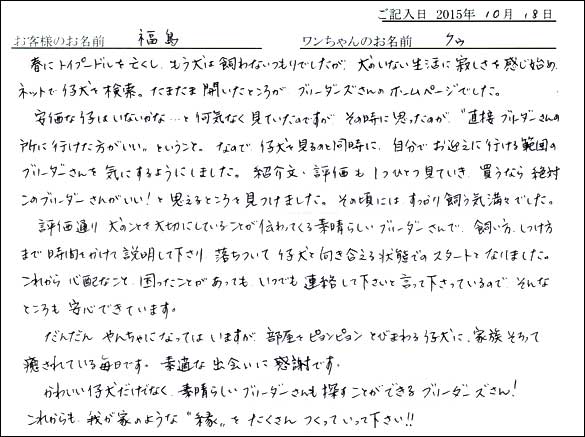 ご記入日 2015年 10月 18日
お客様のお名前 福島 ワンちゃんのお名前 クゥ
春にトイプードルを亡くし、もう犬は飼わないつもりでしたが、犬のいない生活に寂しさを感じ始め、
ネットで仔犬を検索。たまたま開いたところが ブリーダーズさんのホームページでした。
安価な仔はいないかな…と何気なく見ていたのですが その時に思ったのが、"直接ブリーダーさんの
所に行けた方がいい"ということ。なので、仔犬を見るのと同時に、自分でお迎えに行ける範囲の
ブリーダーさんを気にするようにしました。紹介文・評価も1つひとつ見ていき、買うなら絶対
このブリーダーさんがいい!と思えるところを見つけました。その頃には すっかり飼う気満々でした。
評価通り 犬のことを大切にしていることが伝わってくる素晴らしいブリーダーさんで、飼い方、しつけ方
まで時間をかけて説明して下さり 落ちついて仔犬と向き合える状態でのスタートとなりました。
これから心配なこと、困ったことがあっても、いつでも連絡して下さいと言って下さっているので、そんな
ところも安心できています。
だんだん やんちゃになってはいますが、部屋をピョンピョンとびまわる仔犬に、家族そろって
癒されている毎日です。素適な出会いに感謝です。
かわいい仔犬だけでなく、素晴らしいブリーダーさんも探すことができるブリーダーズさん!
これからも、我が家のような"縁"をたくさんつくっていって下さい!!